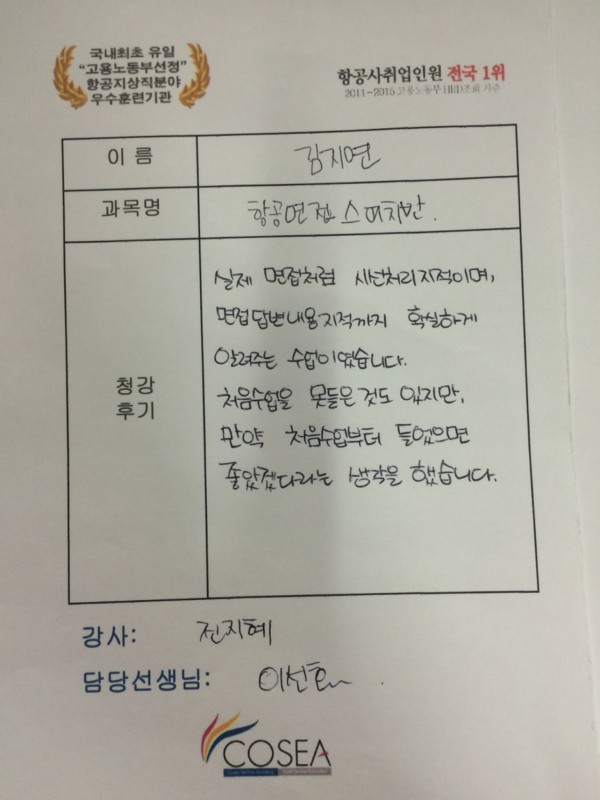 국내최초 유일
"고용노동부선정"
항공지상직분야
우수훈련기관
항공사취업인원 전국 1위
2011-2015 고용노동부 HRD조회 기준
이 름
김지연
과목명
항공면접 스피치반.
청강
후기
실제 면접처럼 시선처리지적이며,
면접답변내용지적까지 확실하게
알려주는 수업이였습니다.
처음수업을 못들은것도 있지만,
만약 처음수업부터 들었으면
좋았겠다라는 생각을 했습니다.
강사: 진지혜
담당선생님: 이선호
COSEA